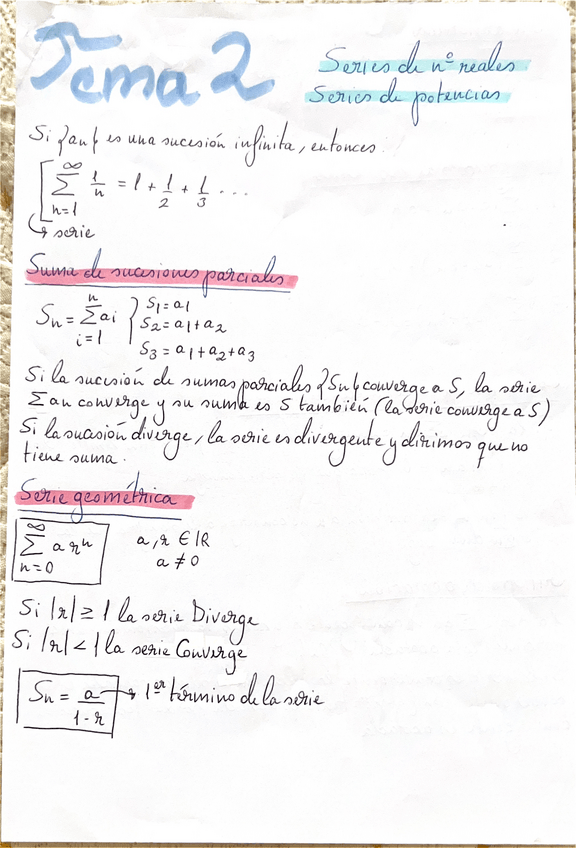 Tema 2
Series de nº reales
Series de potencias
Si {an} es una sucesión infinita, entonces.
∞
∑ 1/n = 1 + 1/2 + 1/3 ...
n=1
↳ serie
Suma de sucesiones parciales
Sn = ∑ai (i=1, n) } S1 = a1
S2 = a1 + a2
S3 = a1 + a2 + a3
Si la sucesión de sumas parciales {Sn} converge a S, la serie
∑an converge y su suma es S también (la serie converge a S)
Si la sucesión diverge, la serie es divergente y dirimos que no
tiene suma.
Serie geométrica
∞
∑ a rⁿ a, r ∈ ℝ
n=0 a ≠ 0
Si |r| ≥ 1 la serie Diverge
Si |r| < 1 la serie Converge
Sn = a/(1-r) → 1er término de la serie